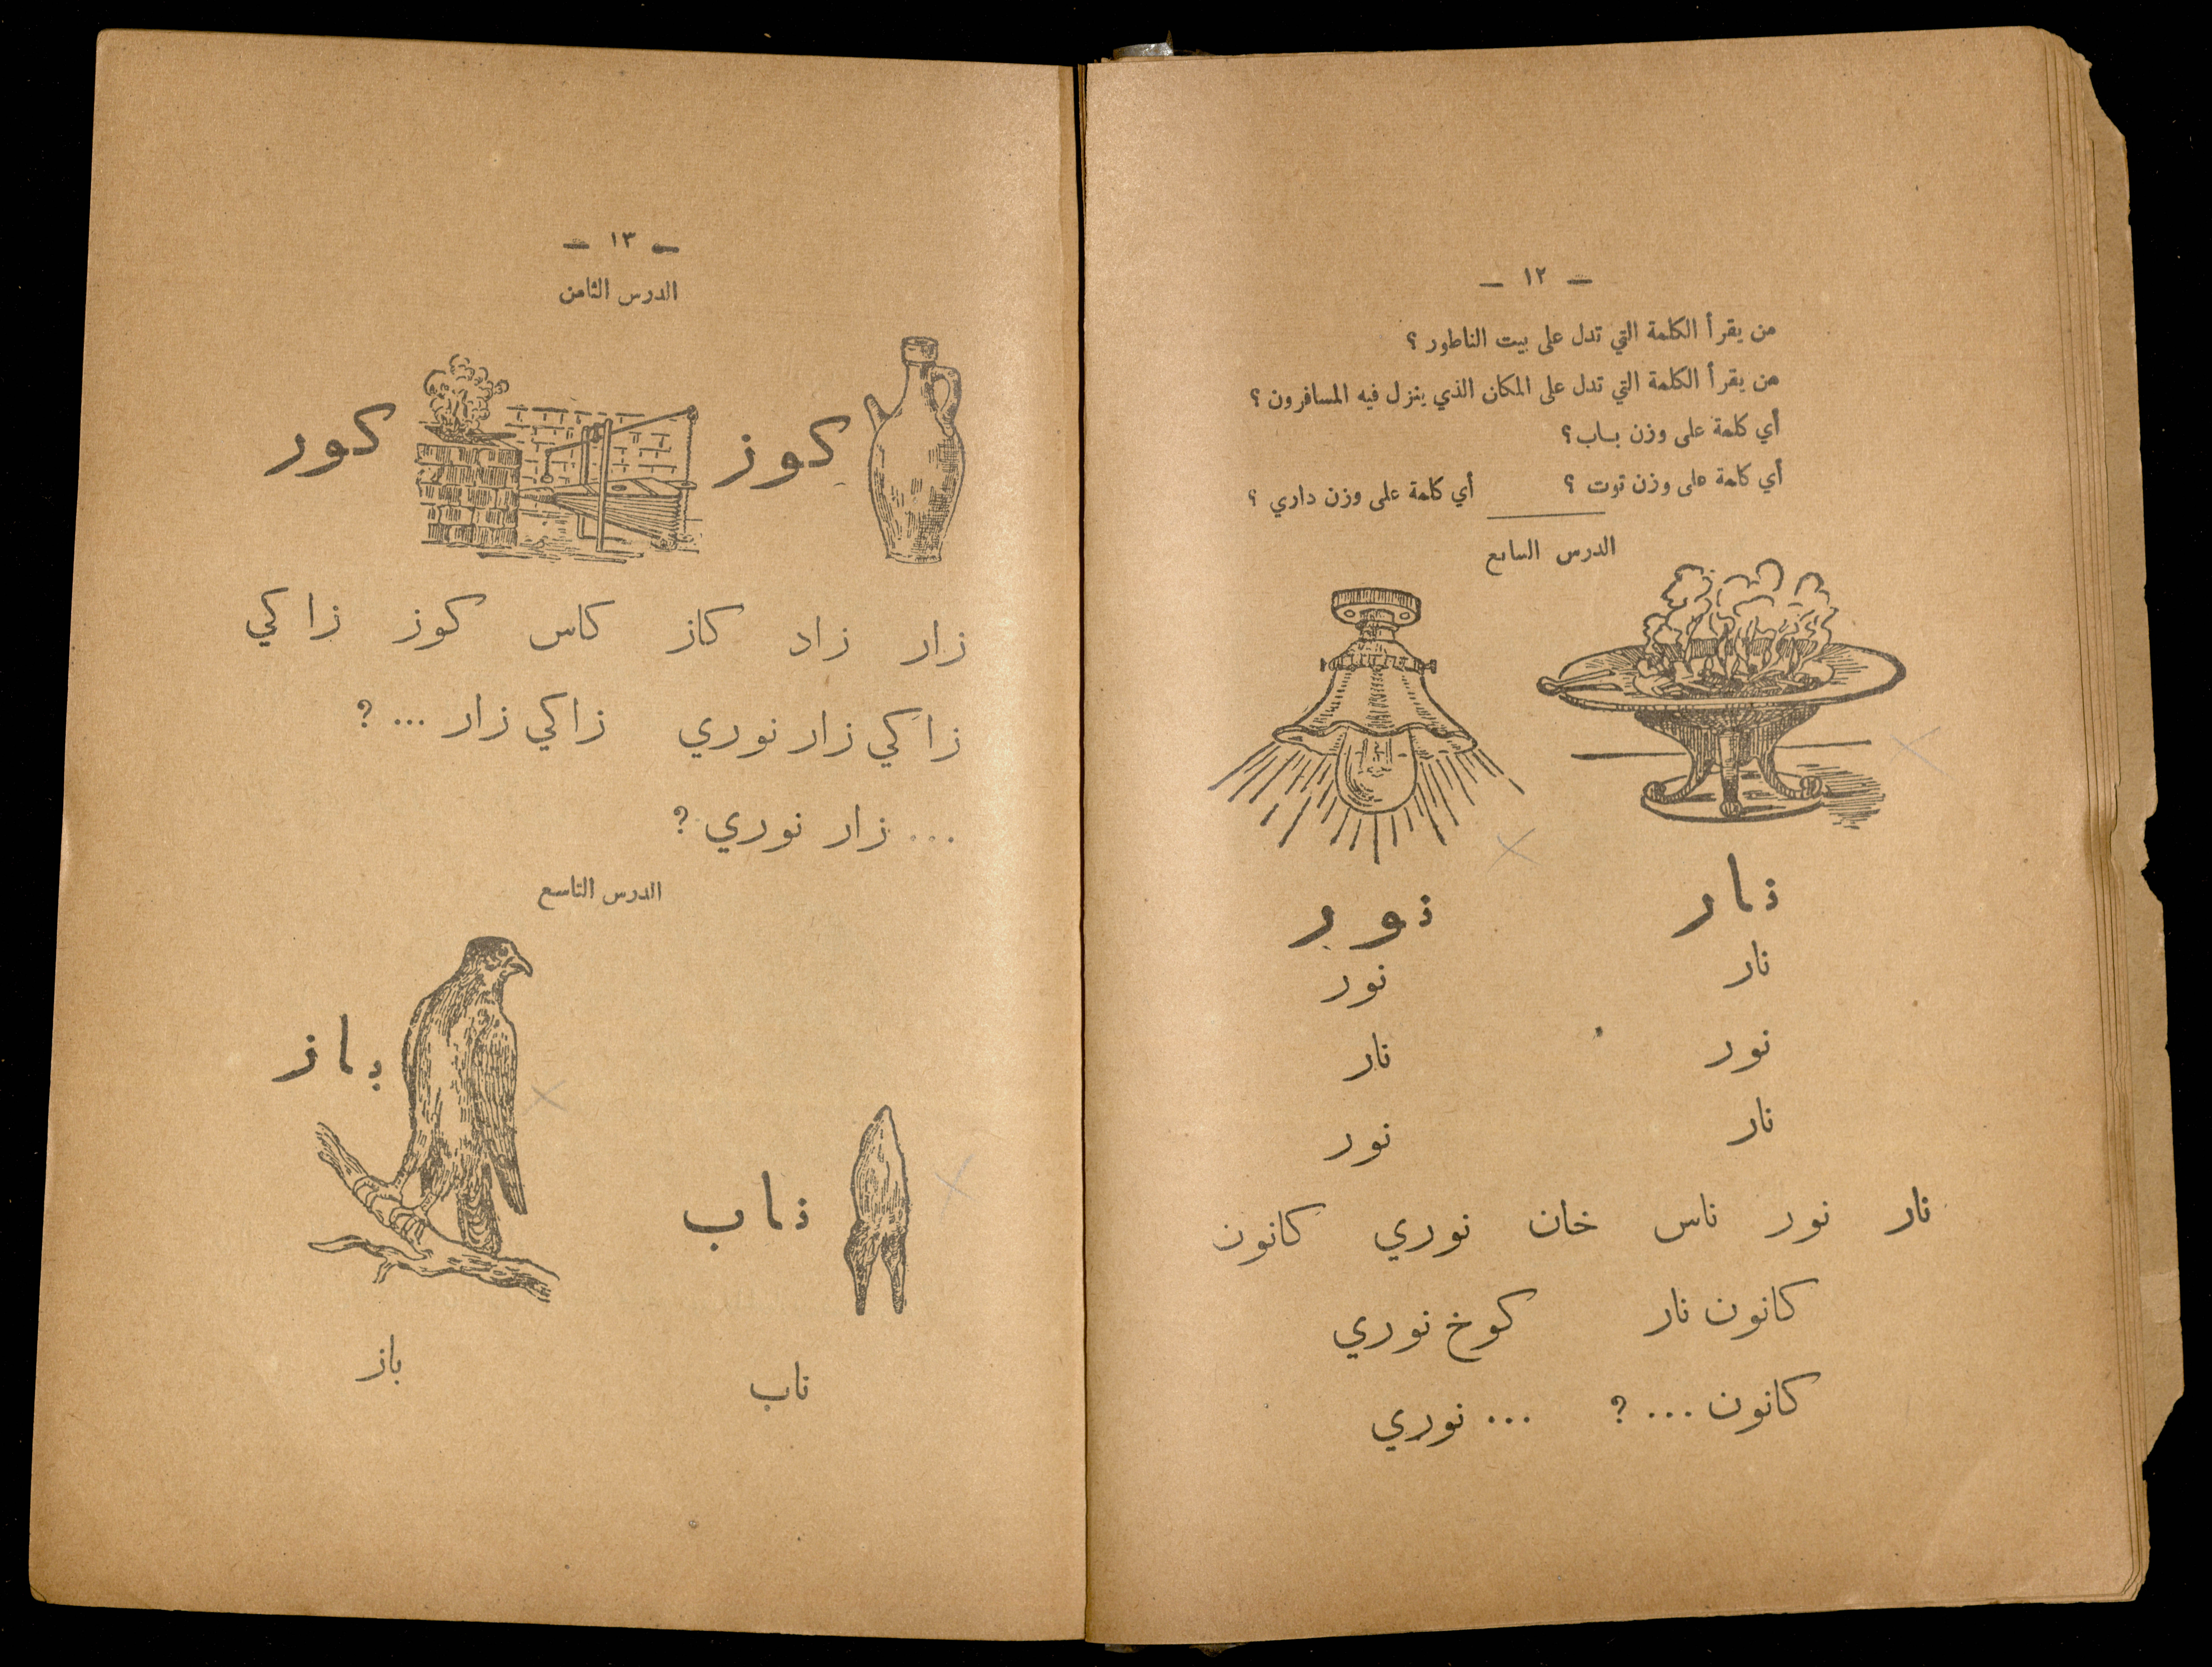 — ١٢ —
من يقرأ الكلمة التي تدل على بيت الناطور ؟
من يقرأ الكلمة التي تدل على المكان الذي ينزل فيه المسافرون ؟
أي كلمة على وزن باب؟
أي كلمة على وزن توت ؟ أي كلمة على وزن داري ؟
الدرس السابع
نار نور
نار نور
نور نار
نار نور
نار نور ناس خان نوري كانون
كانون نار كوخ نوري
كانون ... ؟ ... نوري
— ١٣ —
الدرس الثامن
كوز كور
زار زاد كاز كاس كوز زاكي
زاكي زار نوري زاكي زار ... ؟
... زار نوري ؟
الدرس التاسع
باز
ناب
ناب باز